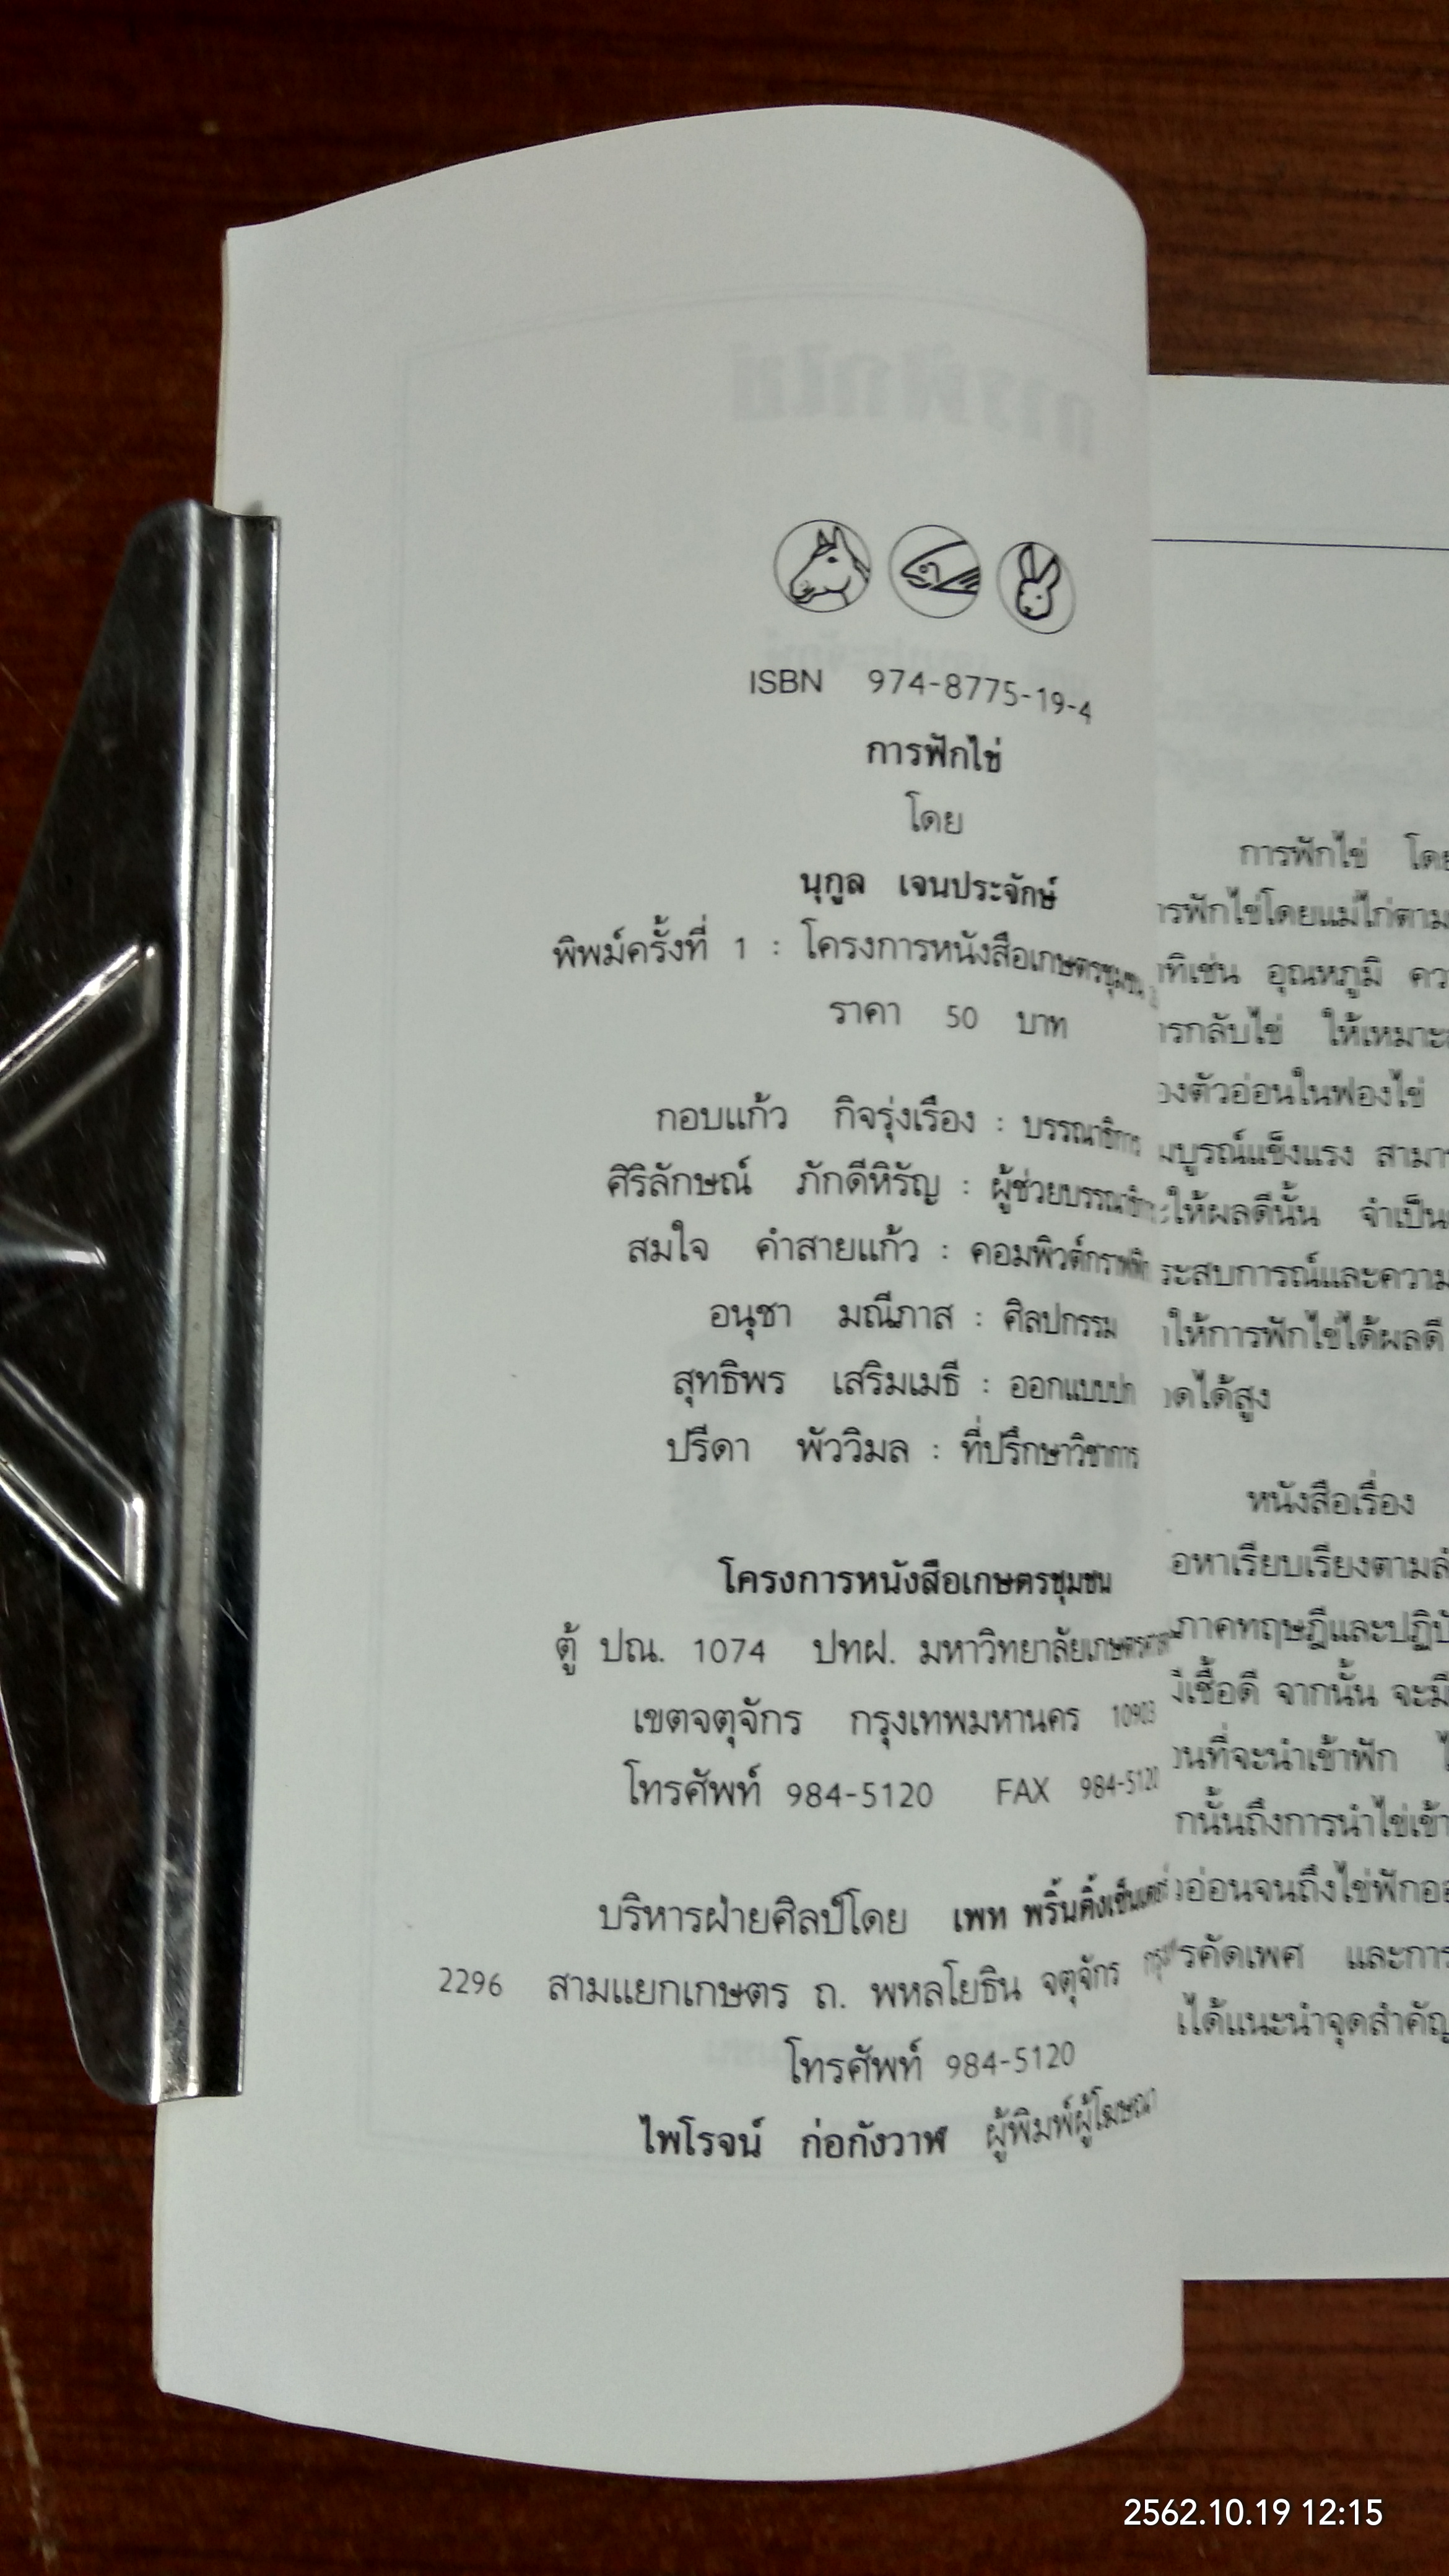 ISBN 974-8775-19-4
การฟักไข่
โดย
นุกูล เจนประจักษ์
พิมพ์ครั้งที่ 1 : โครงการหนังสือเกษตรชุมชน
ราคา 50 บาท
กอบแก้ว กิจรุ่งเรือง : บรรณาธิการ
ศิริลักษณ์ ภักดีหิรัญ : ผู้ช่วยบรรณาธิการ
สมใจ คำสายแก้ว : คอมพิวต์กราฟฟิก
อนุชา มณีภาส : ศิลปกรรม
สุทธิพร เสริมเมธี : ออกแบบปก
ปรีดา พัววิมล : ที่ปรึกษาวิชาการ
โครงการหนังสือเกษตรชุมชน
ตู้ ปณ. 1074 ปทฝ. มหาวิทยาลัยเกษตรศาสตร์
เขตจตุจักร กรุงเทพมหานคร 10903
โทรศัพท์ 984-5120 FAX 984-5120
บริหารฝ่ายศิลป์โดย เพท พริ้นติ้งเซ็นเตอร์
2296 สามแยกเกษตร ถ. พหลโยธิน จตุจักร
โทรศัพท์ 984-5120
ไพโรจน์ ก่อกังวาฬ ผู้พิมพ์ผู้โฆษณา
การฟักไข่ โดย
ารฟักไข่โดยแม่ไก่ตาม
าทิเช่น อุณหภูมิ คว
ารกลับไข่ ให้เหมาะ
องตัวอ่อนในฟองไข่
มบูรณ์แข็งแรง สามา
ะให้ผลดีนั้น จำเป็น
ระสบการณ์และความ
ำให้การฟักไข่ได้ผลดี
าดได้สูง
หนังสือเรื่อง
อหาเรียบเรียงตามลำ
ภาคทฤษฎีและปฏิบั
มีเชื้อดี จากนั้น จะมี
อนที่จะนำเข้าฟัก
กนั้นถึงการนำไข่เข้า
วอ่อนจนถึงไข่ฟักออ
รคัดเพศ และการ
ได้แนะนำจุดสำคัญ
2562.10.19 12:15